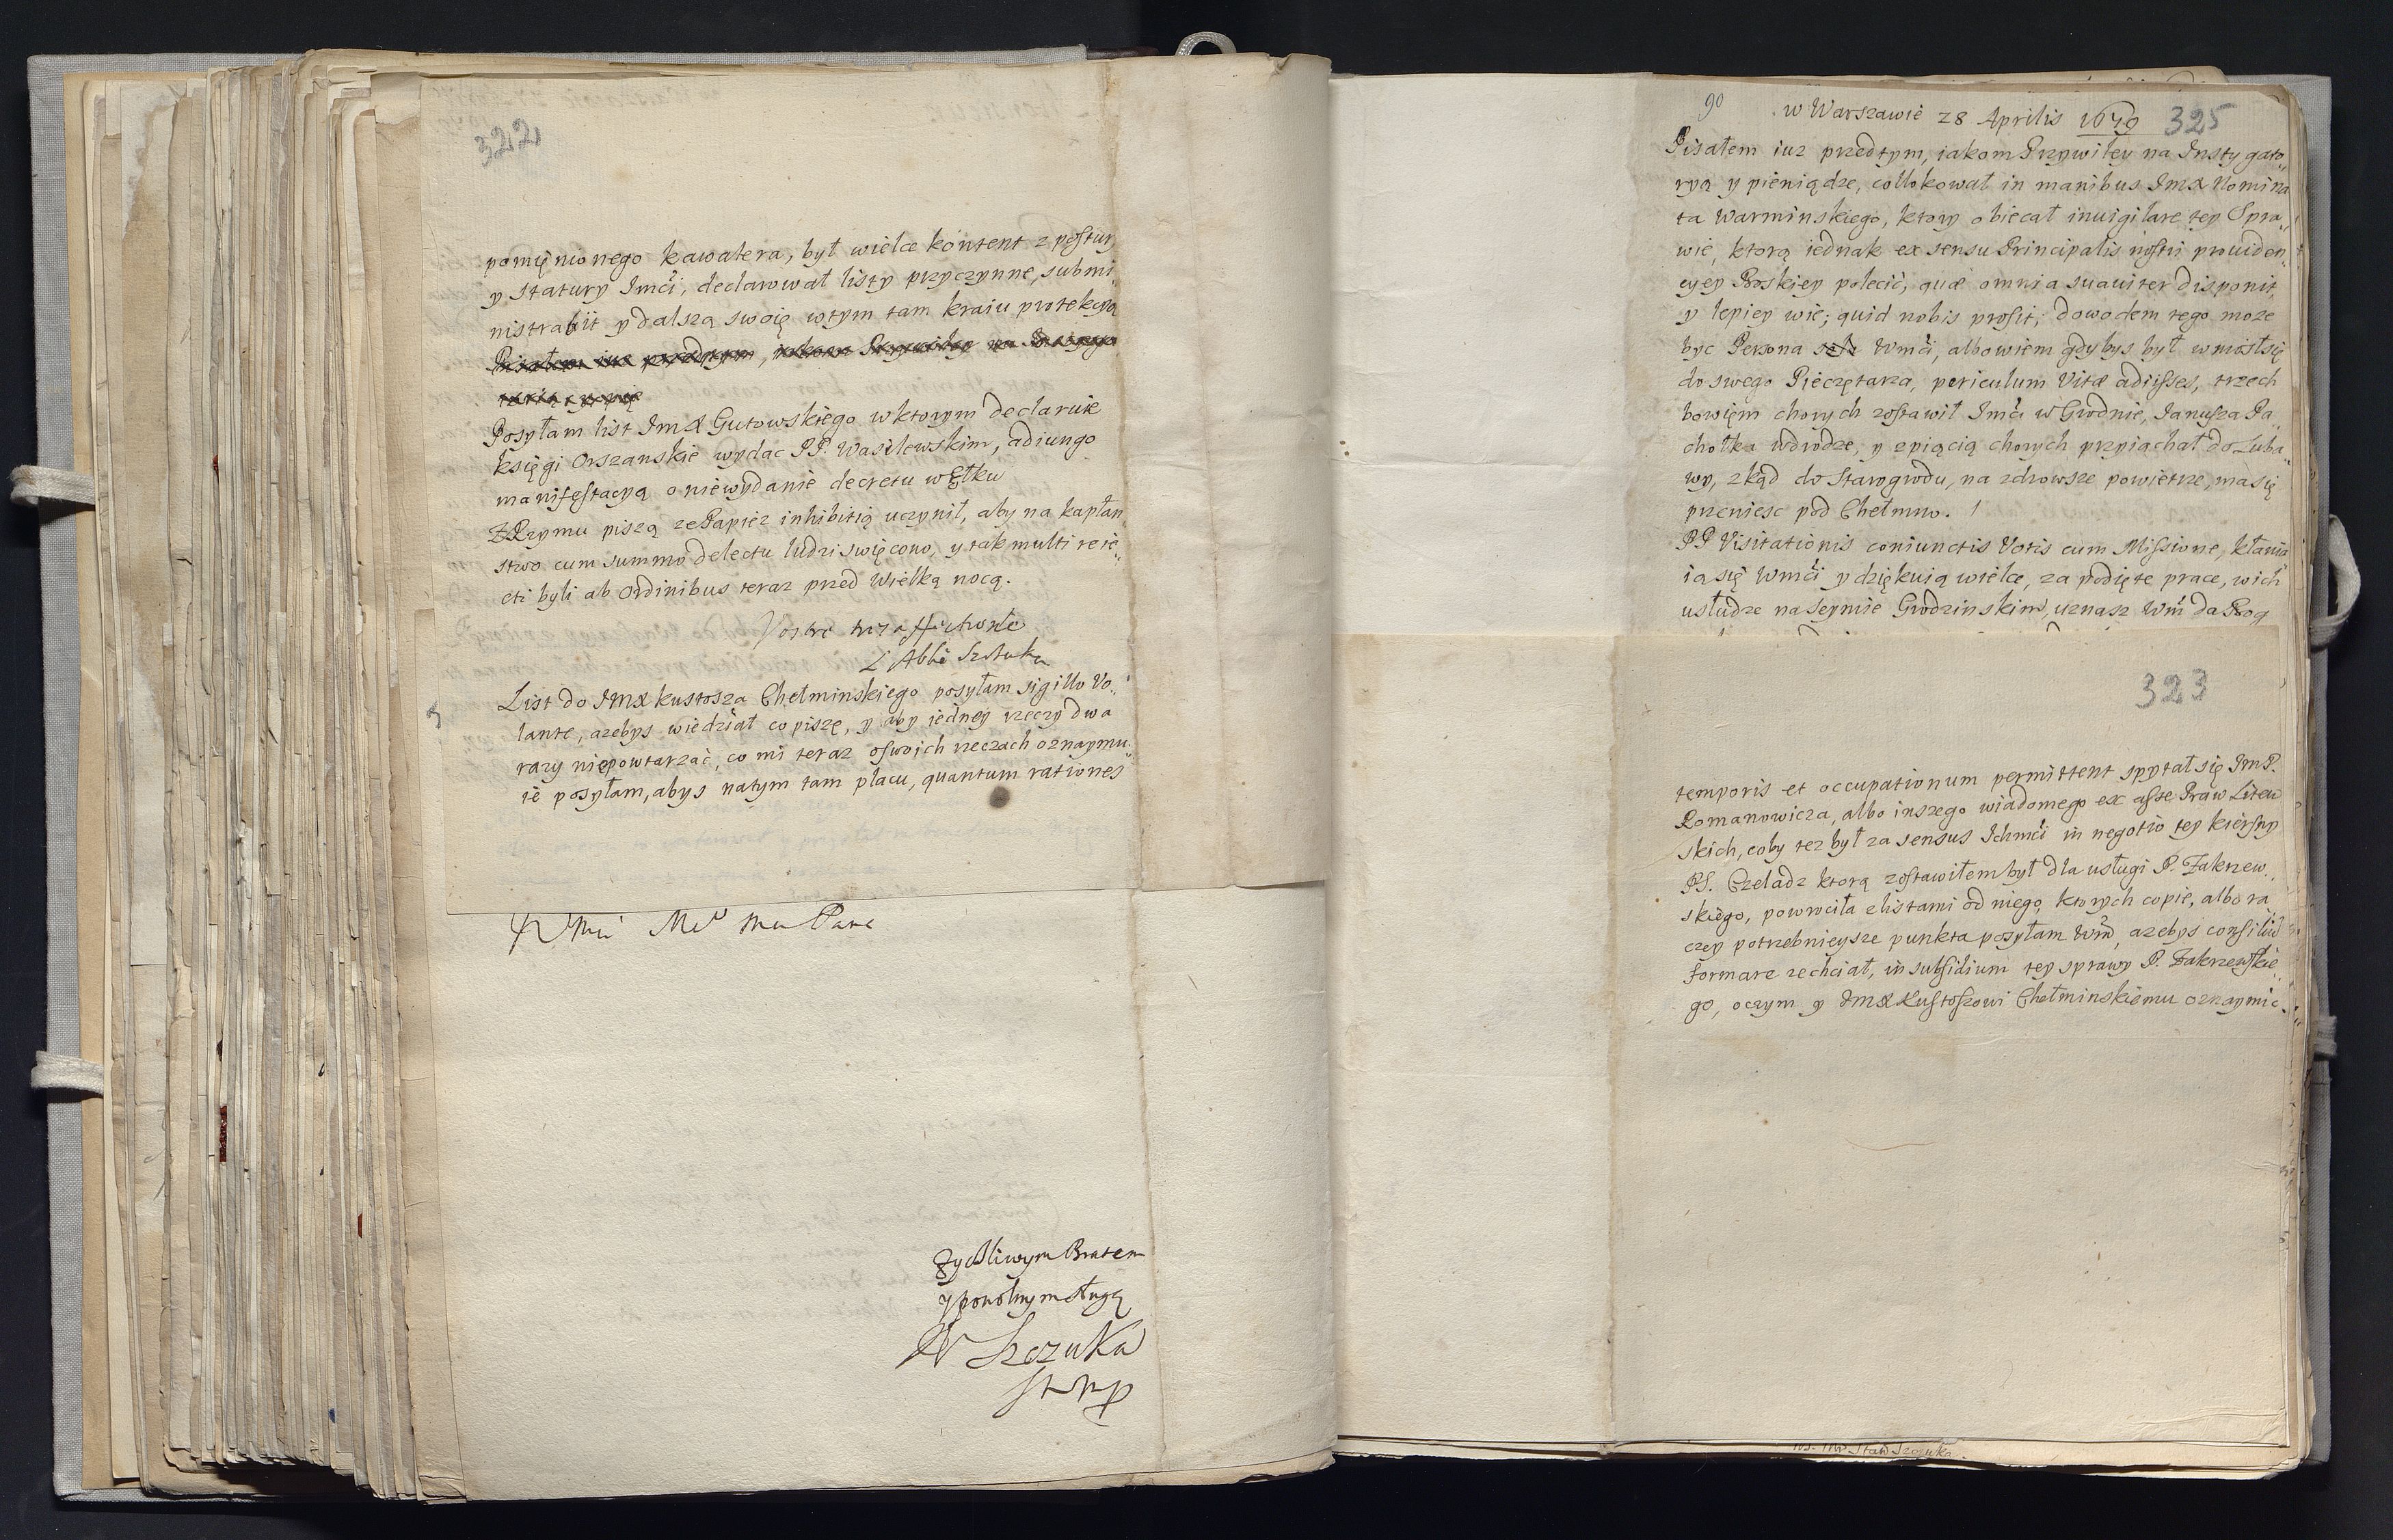 322
pomięnionego kawalera, był wielce kontent z postury
y statury Imći, declarował listy przyczynne, submi„
nistrabit y dalszą swoię wtym tam kraiu protekcyą
Pisałem iuz przedtym, iakom Przywiley na Instyga
Posyłam list ImX Gutowskiego wktorym declaruie
księgi Orszanskie wydac PP. Wasilewskim, adiungo
manifestacyą oniewydanie decretu wEłku
ZRzymu piszą zePapiez inhibitią uczynił, aby na kapłan„
stwo cum summo delectu ludzi swięcono, y tak multi reie„
cti byli ab Ordinibus teraz przed Wielką nocą.
Vostre tres affectionné
L'Abbé Sztuka
List do ImX kustosza Chełminskiego posyłam sigillo Vo„
lante, azebys wiedział co piszę, y aby iedney rzeczy dwa
razy niepowtarzać, co mi teraz oswoich rzeczach oznaymu„
ie posyłam, abys natym tam placu, quantum rationes
Wmći Me Mu Pana
Zyczliwym Bratem
y powolnym sługą
Szczuka
90
w Warszawie 28 Aprilis 1679
325
Pisałem iuz przedtym, iakom Przywiley na Instygato„
ryą y pieniądze, collokował in manibus ImX Nomina
ta Warminskiego, ktory obiecał inuigilare tey Spra„
wie, ktorą iednak ex sensu Principalis nostri prouiden„
cyey Boskiey polecić, quæ omnia suauiter disponit,
y lepiey wie; quid nobis prosit; dowodem tego moze
byc Persona Wmći, albowiem gdybys był wniósł się
do swego Pieczętarza, periculum Vitæ adiisses, trzech
bowięm chorych zostawił Imći w Grodnie, Janusza Pa„
chołka wdrodze, y zpiącią chorych przyiachał do Luba„
wy, zkąd do Starogrodu, na zdrowsze powietrze, ma się
przeniesc pod Chełmno.
PP Visitationis coniunctis Votis cum Missione, kłania
ią się Wmći y dziękuią wielce, za podięte prace, wich
usłudze naseymie Grodzinskim, uznasz Wm da Bog
323
temporis et occupationum permittent spytał się ImP.
Romanowicza, albo inszego wiadomego ex asse Praw Litew
skich, coby tez był za sensus Ichmći in negotio tey kiersny
PS. Czeladz ktorą zostawiłem był dla usługi P. Zakrzew„
skiego, powrociła zlistami od niego, ktorych copie, albo ra
czey potrzebnieysze punkta posyłam Wm, azebys consiliũ
formare zechciał, in subsidium tey sprawy P. Zakrzewskie„
go, oczym y ImX Kustoszowi Chełminskiemu oznaymic.